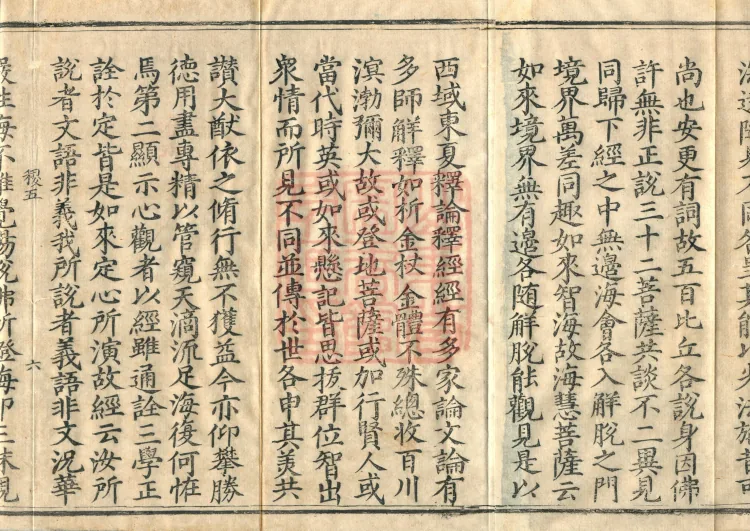 尚也安更有詞故五百比丘各說身因佛
許無非正說三十二菩薩共談不二異見
同歸下經之中無邊海會各入解脫之門
境界萬差同趣如來智海故海慧菩薩云
如來境界無有邊各隨解脫能觀見是以
西域東夏釋論釋經經有多家論文論有
多師解釋如析金杖金體不殊總收百川
溟渤彌大故或登地菩薩或加行賢人或
當代時英或如來懸記皆思拔群位智出
衆情而所見不同並傳於世各申其美共
讃大猷依之脩行無不獲益今亦仰攀勝
德用盡專精以管窺天滴流足海復何恠
焉第二顯示心觀者以經雖通詮三學正
詮於定皆是如來定心所演故經云汝所
說者文語非義我所說者義語非文況華
稷五
六